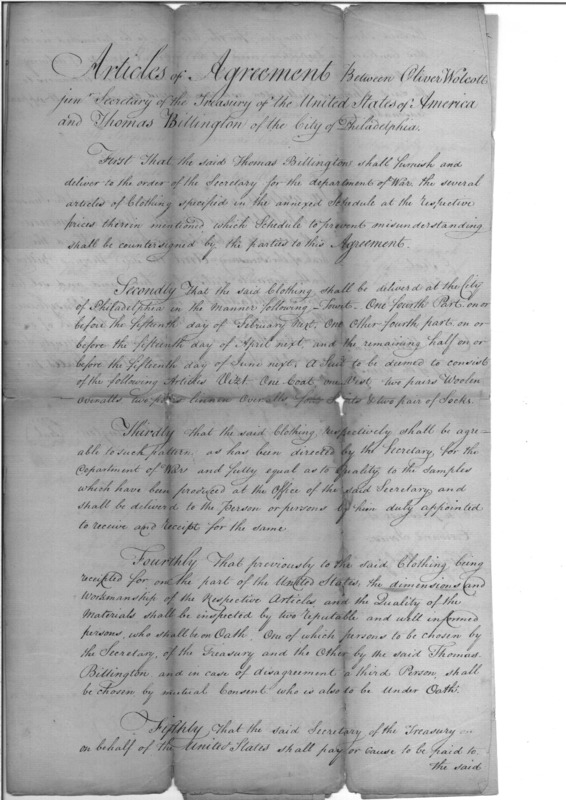 Articles of Agreement Between Oliver Wolcott
junr Secretary of the Treasury of the United States of America
and Thomas Billington of the City of Philadelphia.
First That the said Thomas Billington shall furnish and
deliver to the order of the Secretary for the department of War, the several
articles of Clothing specified in the annexed Schedule at the respective
prices therein mentioned, which Schedule to prevent misunderstanding
shall be countersigned by the parties to this Agreement.
Secondly That the said Clothing shall be deliverd at the City
of Philadelphia in the manner following — Towit — One fourth Part on or
before the fifteenth day of February next, One other fourth part, on or
before the fifteenth day of April next, and the remaining half on or
before the fifteenth day of June next. A Suit to be deemed to consist
of the following Articles Vizt. One Coat, one Vest, two pairs Woolen
overalls, two pairs linnen Overalls four Shirts & two pair of Socks.
Thirdly that the said Clothing respectively shall be agre-
able to such pattern, as has been directed by the Secretary, for the
Department of War and fully equal as to Quality to the Samples
which have been produced at the Office of the said Secretary and
shall be delivered to the person or persons by him duly appointed
to receive and receipt for the same.
Fourthly That previously to the said Clothing being
receipted for, on the part of the United States, the dimensions and
Workmanship of the Respective Articles, and the Quality of the
Materials shall be inspected by two reputable and well informed
persons, who shall be on Oath, One of which persons to be chosen by
the Secretary, of the Treasury and the Other by the said Thomas
Billington and in case of disagreement a third Person, shall
be chosen by mutual Consent who is also to be under Oath.
Fifthly, that the said Secretary of the Treasury
on behalf of the United States shall pay or cause to be paid to
the said